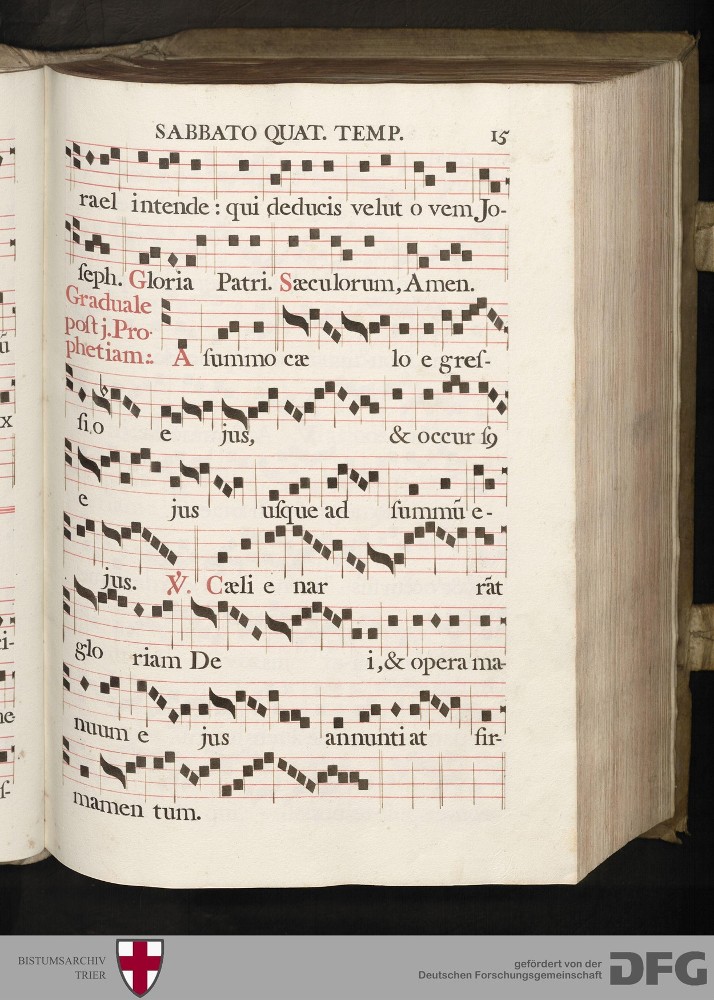 SABBATO QUAT. TEMP. 15
rael intende : qui deducis velut o vem Jo-
ſeph. Gloria Patri. Sæculorum, Amen.
Graduale
poſt j. Pro-
phetiam:. A ſummo cæ lo e greſ-
ſi,o e jus, & occur ſ9
e jus uſque ad ſummū e-
jus. ℣. Cæli e nar rāt
glo riam De i, & opera ma-
nuum e jus annunti at fir-
mamen tum.
ū
x
ri-
ne
ſ-
BISTUMSARCHIV
TRIER
gefördert von der
Deutschen Forschungsgemeinschaft
DFG